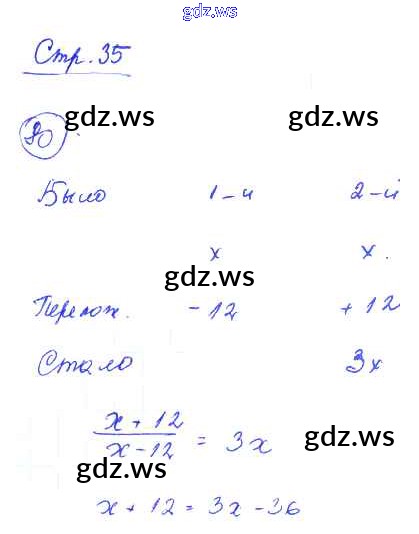 gdz.ws
Стр. 35
gdz.ws gdz.ws
Было 1-й 2-й
x x.
gdz.ws
Перелож. -12 +12
Стало 3x
x + 12 / x - 12 = 3x
gdz.ws
gdz.ws
x + 12 = 3x - 36